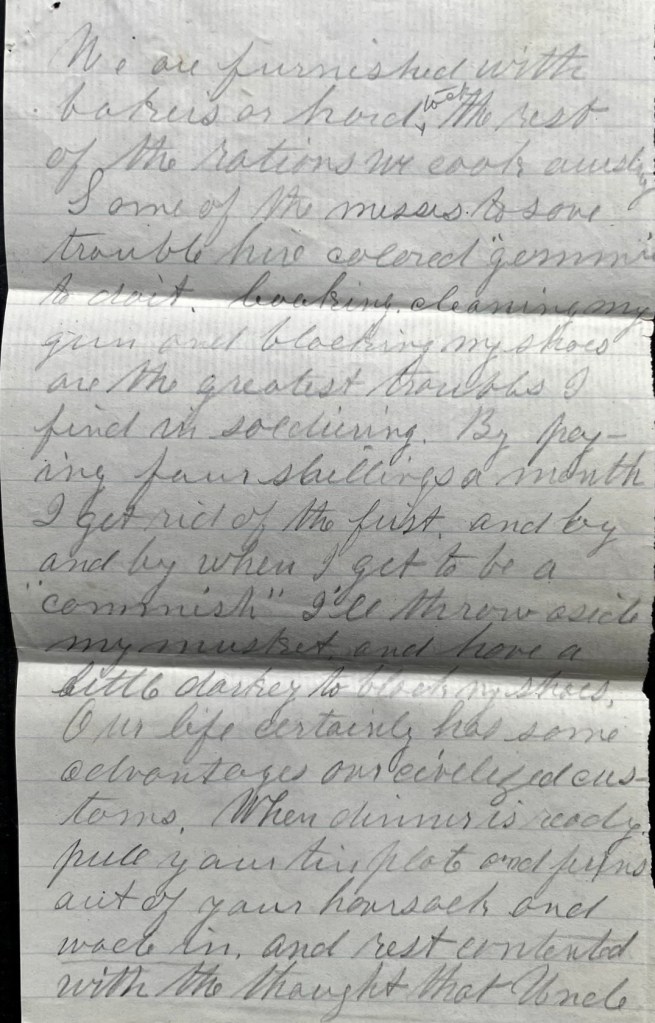 We are furnished with
bakers or hard ^tack the rest
of the rations we cook ourselves
Some of the messes to save
trouble hire colored "gemmin
to do it. Cooking, cleaning my
gun and blacking my shoes
are the greatest troubles I
find in soldiering. By pay-
ing four shillings a month
I get rid of the first, and by
and by when I get to be a
"commish" I'll throw aside
my musket, and have a
little darkey to black my shoes.
Our life certainly has some
advantages over civilized cus-
toms. When dinner is ready
pull your tin plate and
out of your haversack and
wade in, and rest contented
with the thought that Uncle